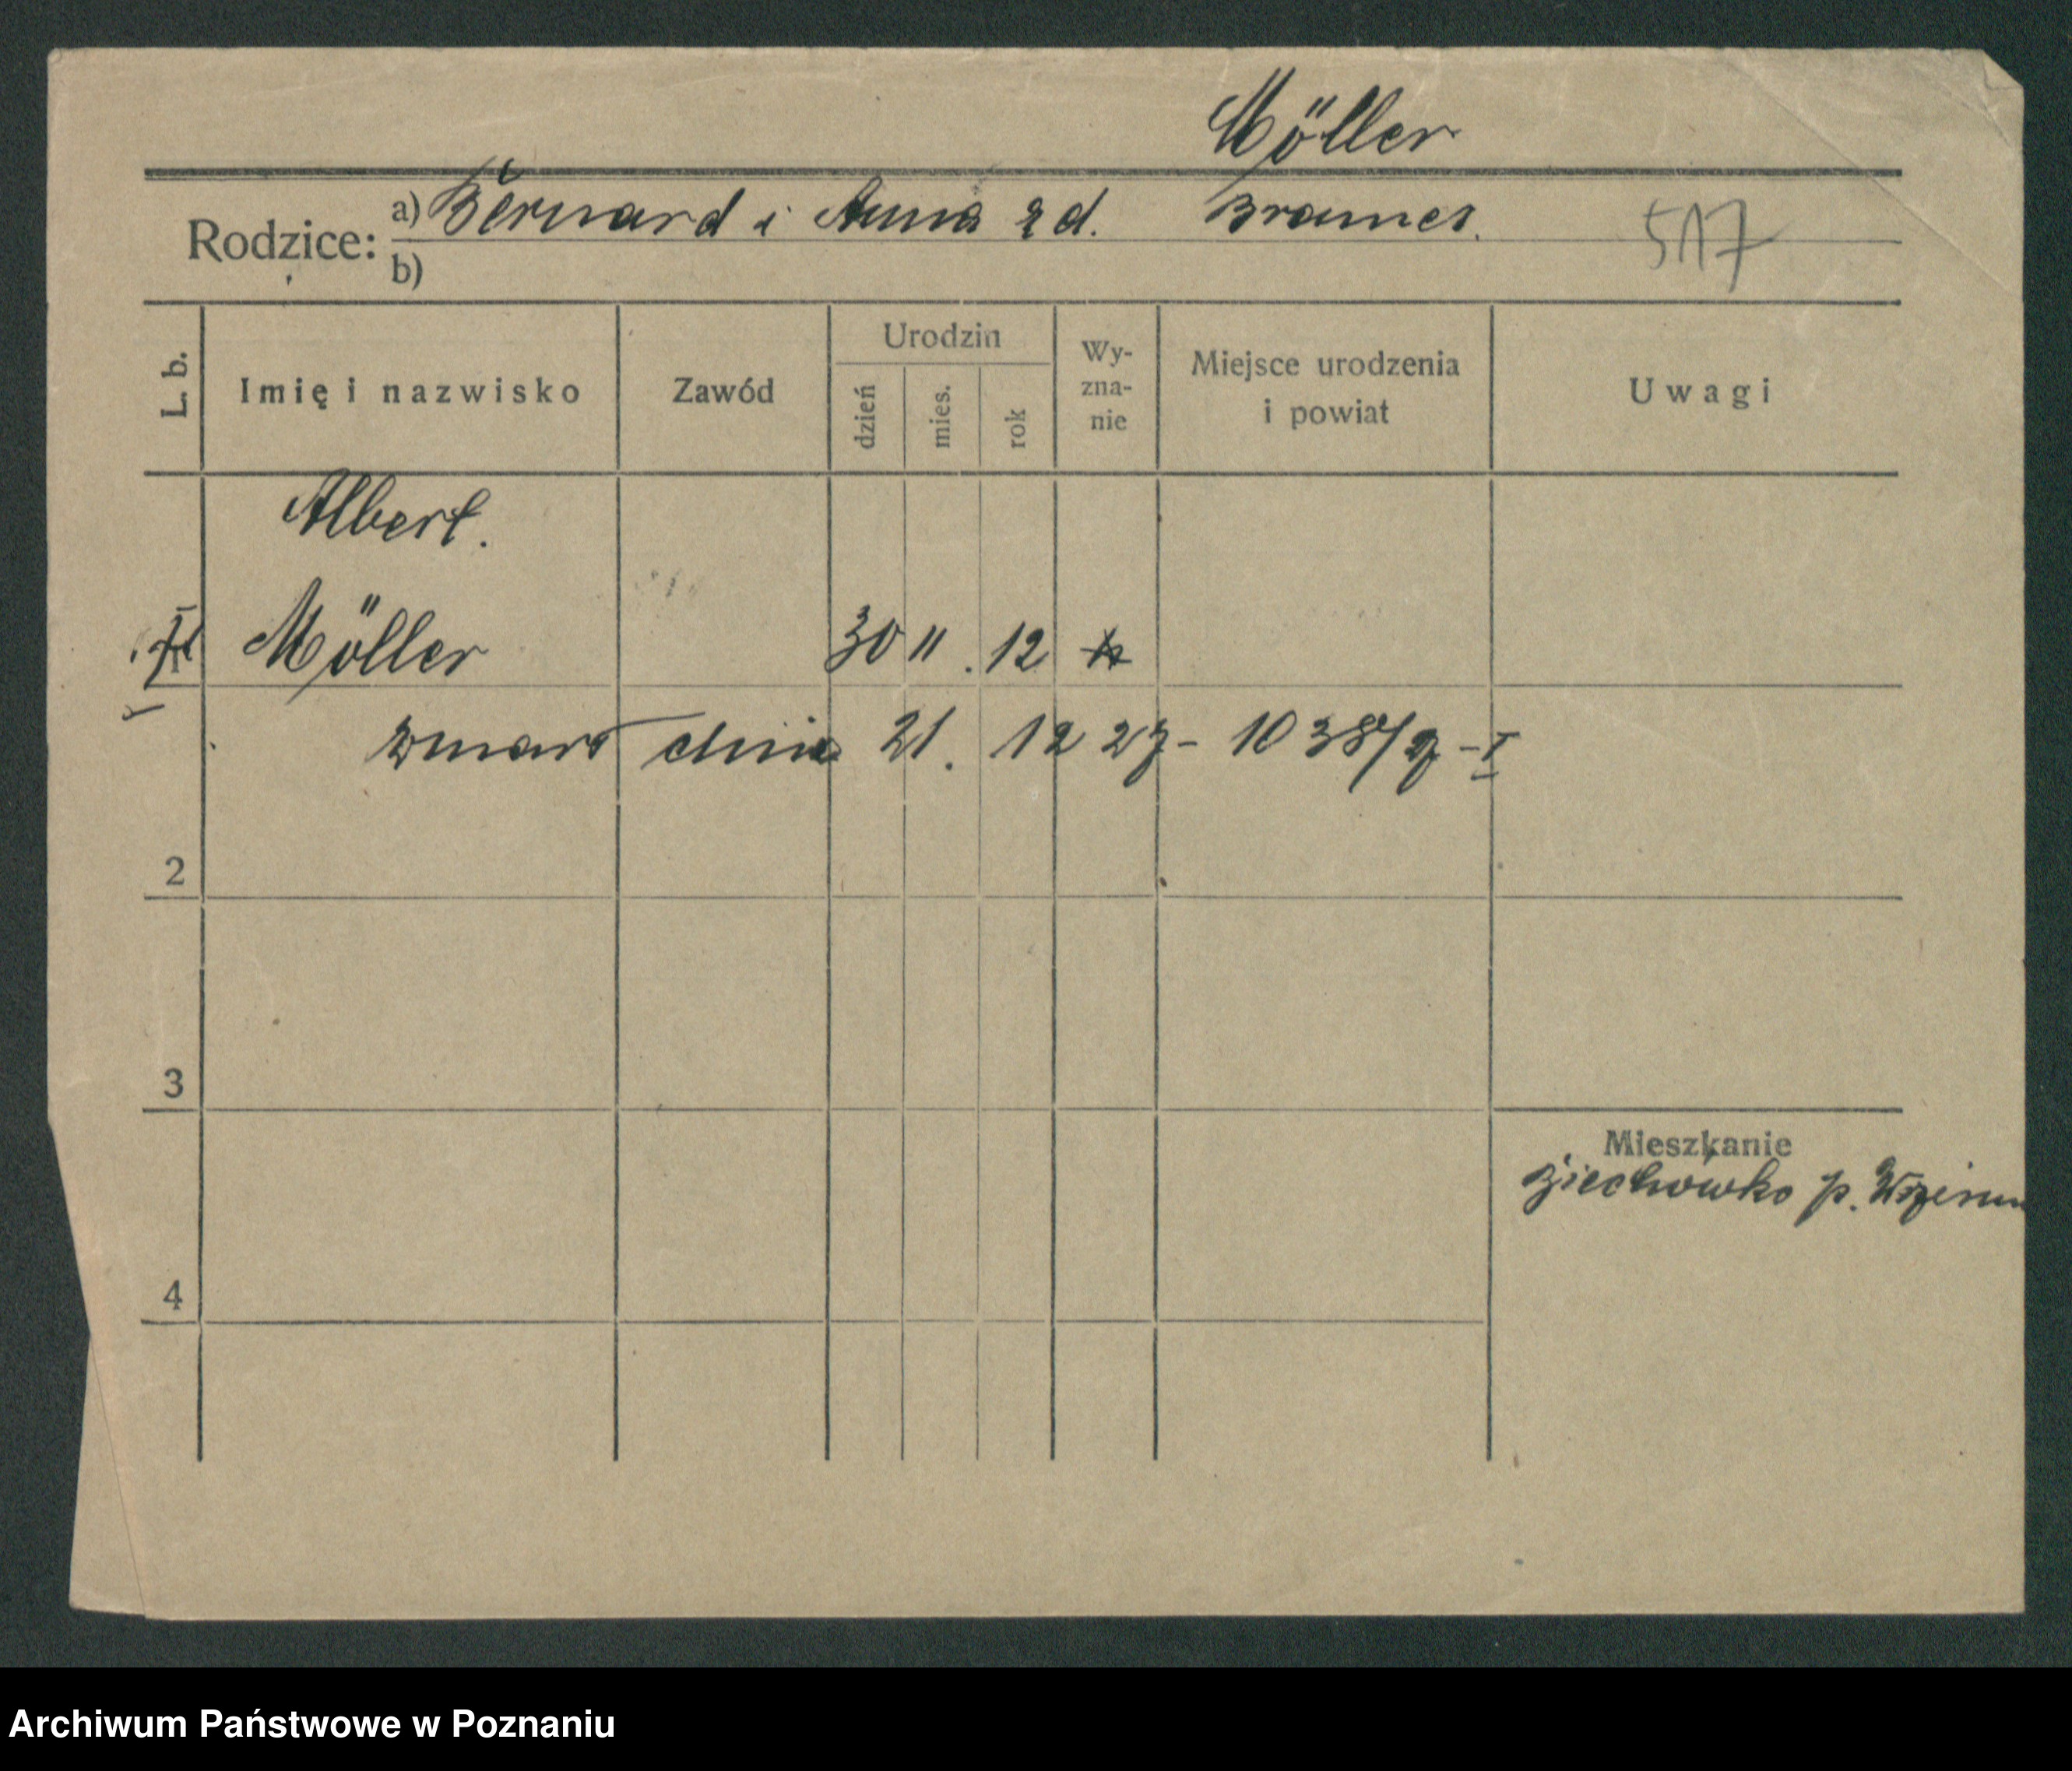 Möller
Rodzice: a) Bernard i Anna zd. Brames.
b)
517
L. b.
Imię i nazwisko
Zawód
Urodzin
dzień
mies.
rok
Wy-
zna-
nie
Miejsce urodzenia
i powiat
Uwagi
Albert.
Möller 30 11. 12 k
zmarł dnia 21. 12 27 - 1038/27 - I
2
3
4
Mieszkanie
p.
Archiwum Państwowe w Poznaniu